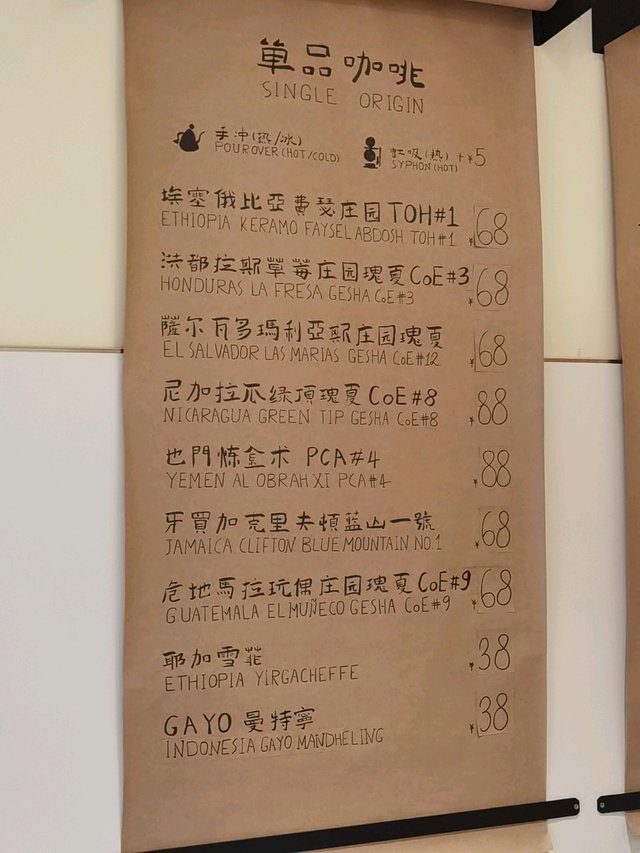 單品咖啡
SINGLE ORIGIN
手冲(热/冰)
POUROVER (HOT/COLD)
虹吸(热) +¥5
SYPHON (HOT)
埃塞俄比亞費瑟庄园TOH#1 ¥68
ETHIOPIA KERAMO FAYSEL ABDOSH TOH#1
洪都拉斯草莓庄园瑰夏CoE#3 ¥68
HONDURAS LA FRESA GESHA CoE#3
薩尔瓦多瑪利亞斯庄园瑰夏 ¥68
EL SALVADOR LAS MARIAS GESHA CoE#12
尼加拉瓜绿頂瑰夏CoE#8 ¥88
NICARAGUA GREEN TIP GESHA CoE#8
也門炼金术 PCA#4 ¥88
YEMEN AL OBRAH XI PCA#4
牙買加克里夫頓蓝山一號 ¥68
JAMAICA CLIFTON BLUE MOUNTAIN NO.1
危地馬拉玩偶庄园瑰夏CoE#9 ¥68
GUATEMALA EL MUÑECO GESHA CoE#9
耶加雪菲 ¥38
ETHIOPIA YIRGACHEFFE
GAYO 曼特寧 ¥38
INDONESIA GAYO MANDHELING